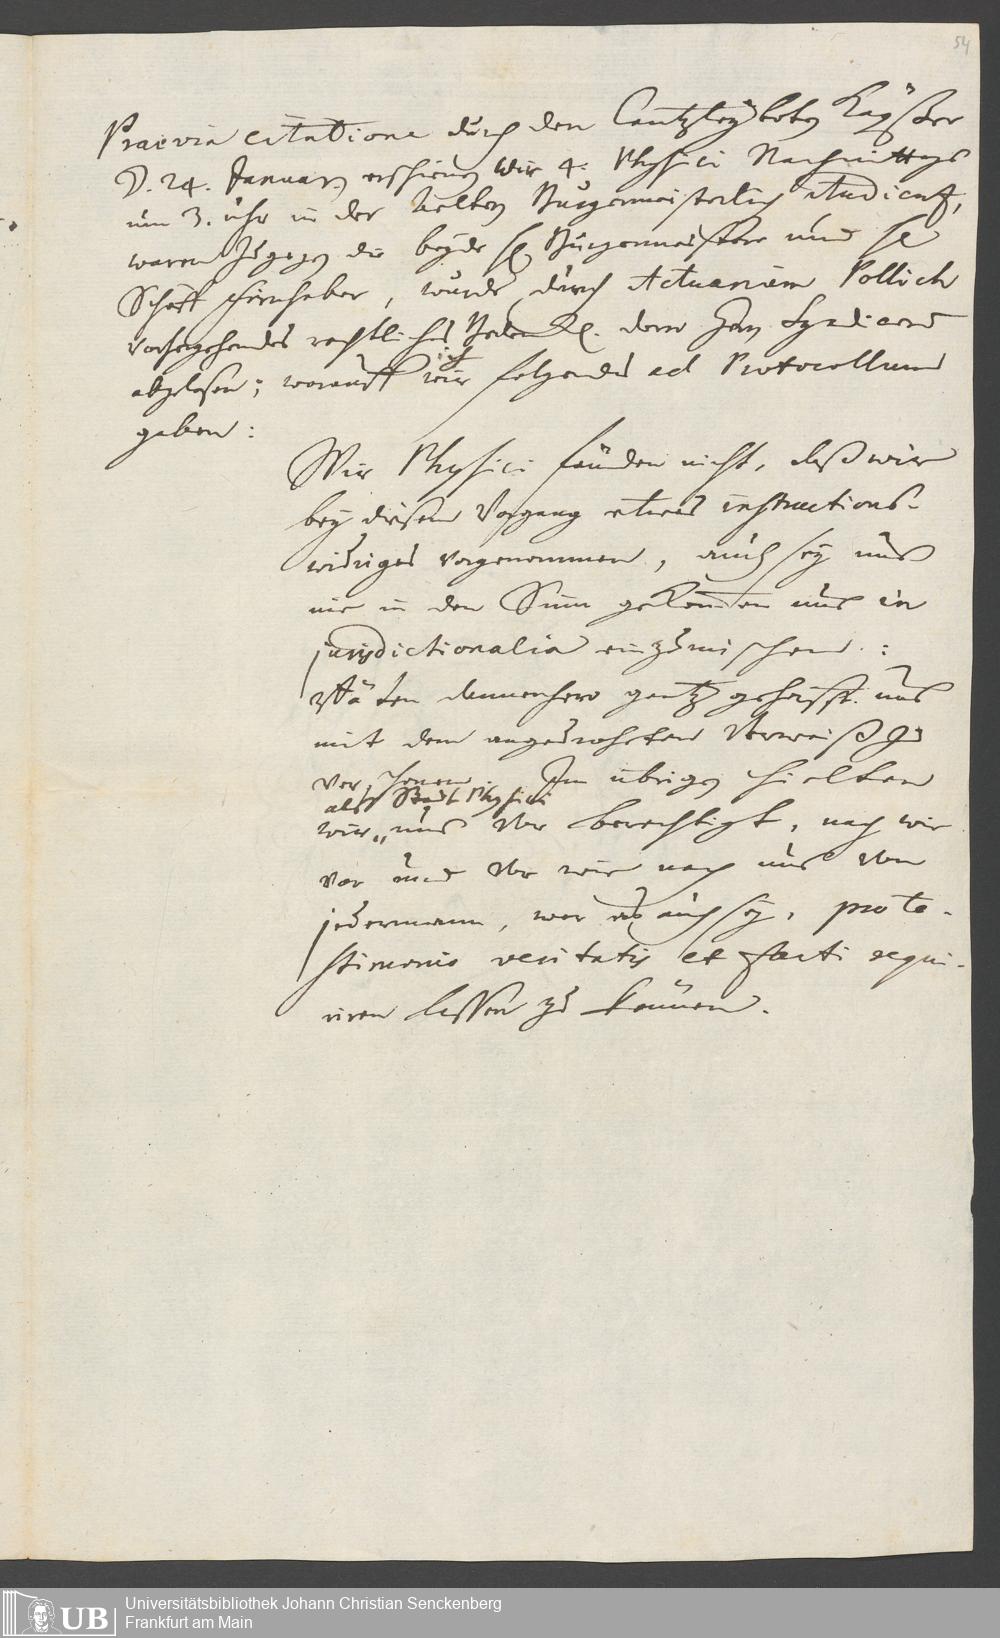 54
Praevia citatione durch den Cantzleybothen Kayßer
D. 24. Januar. erschienen wir 4. Physici Nachmittags
um 3. uhr in der ältern Burgermeisterlich Audienz,
waren zugegen die beyde H. Bürgermeister und H
Schöff, wurde durch Actuarium Pollich
vorhergehendes rechtliches Bedenken derer Herrn Syndicorum
abgelesen; worauff ich wir folgendes ad Protocollum
geben:
Wir Physici fänden nicht, daß wir
bey diesem Vorgang etwas instructions-
widriges vorgenommen, auch sey uns
nie in den Sinn gekommen uns in
jurisdictionalia einzumischen:
bäten dannenhero gantz gehorsst. uns
mit dem angedroheten Verweiß zu
verschonen. Im übrigen hielten
als Stadt Physici
wir uns vor berechtigt, nach wie
vor und vor wie nach uns von
jedermann, wer es auch sey, pro te-
stimonio veritatis et facti requi-
riren lassen zu können.
UB
Universitätsbibliothek Johann Christian Senckenberg
Frankfurt am Main